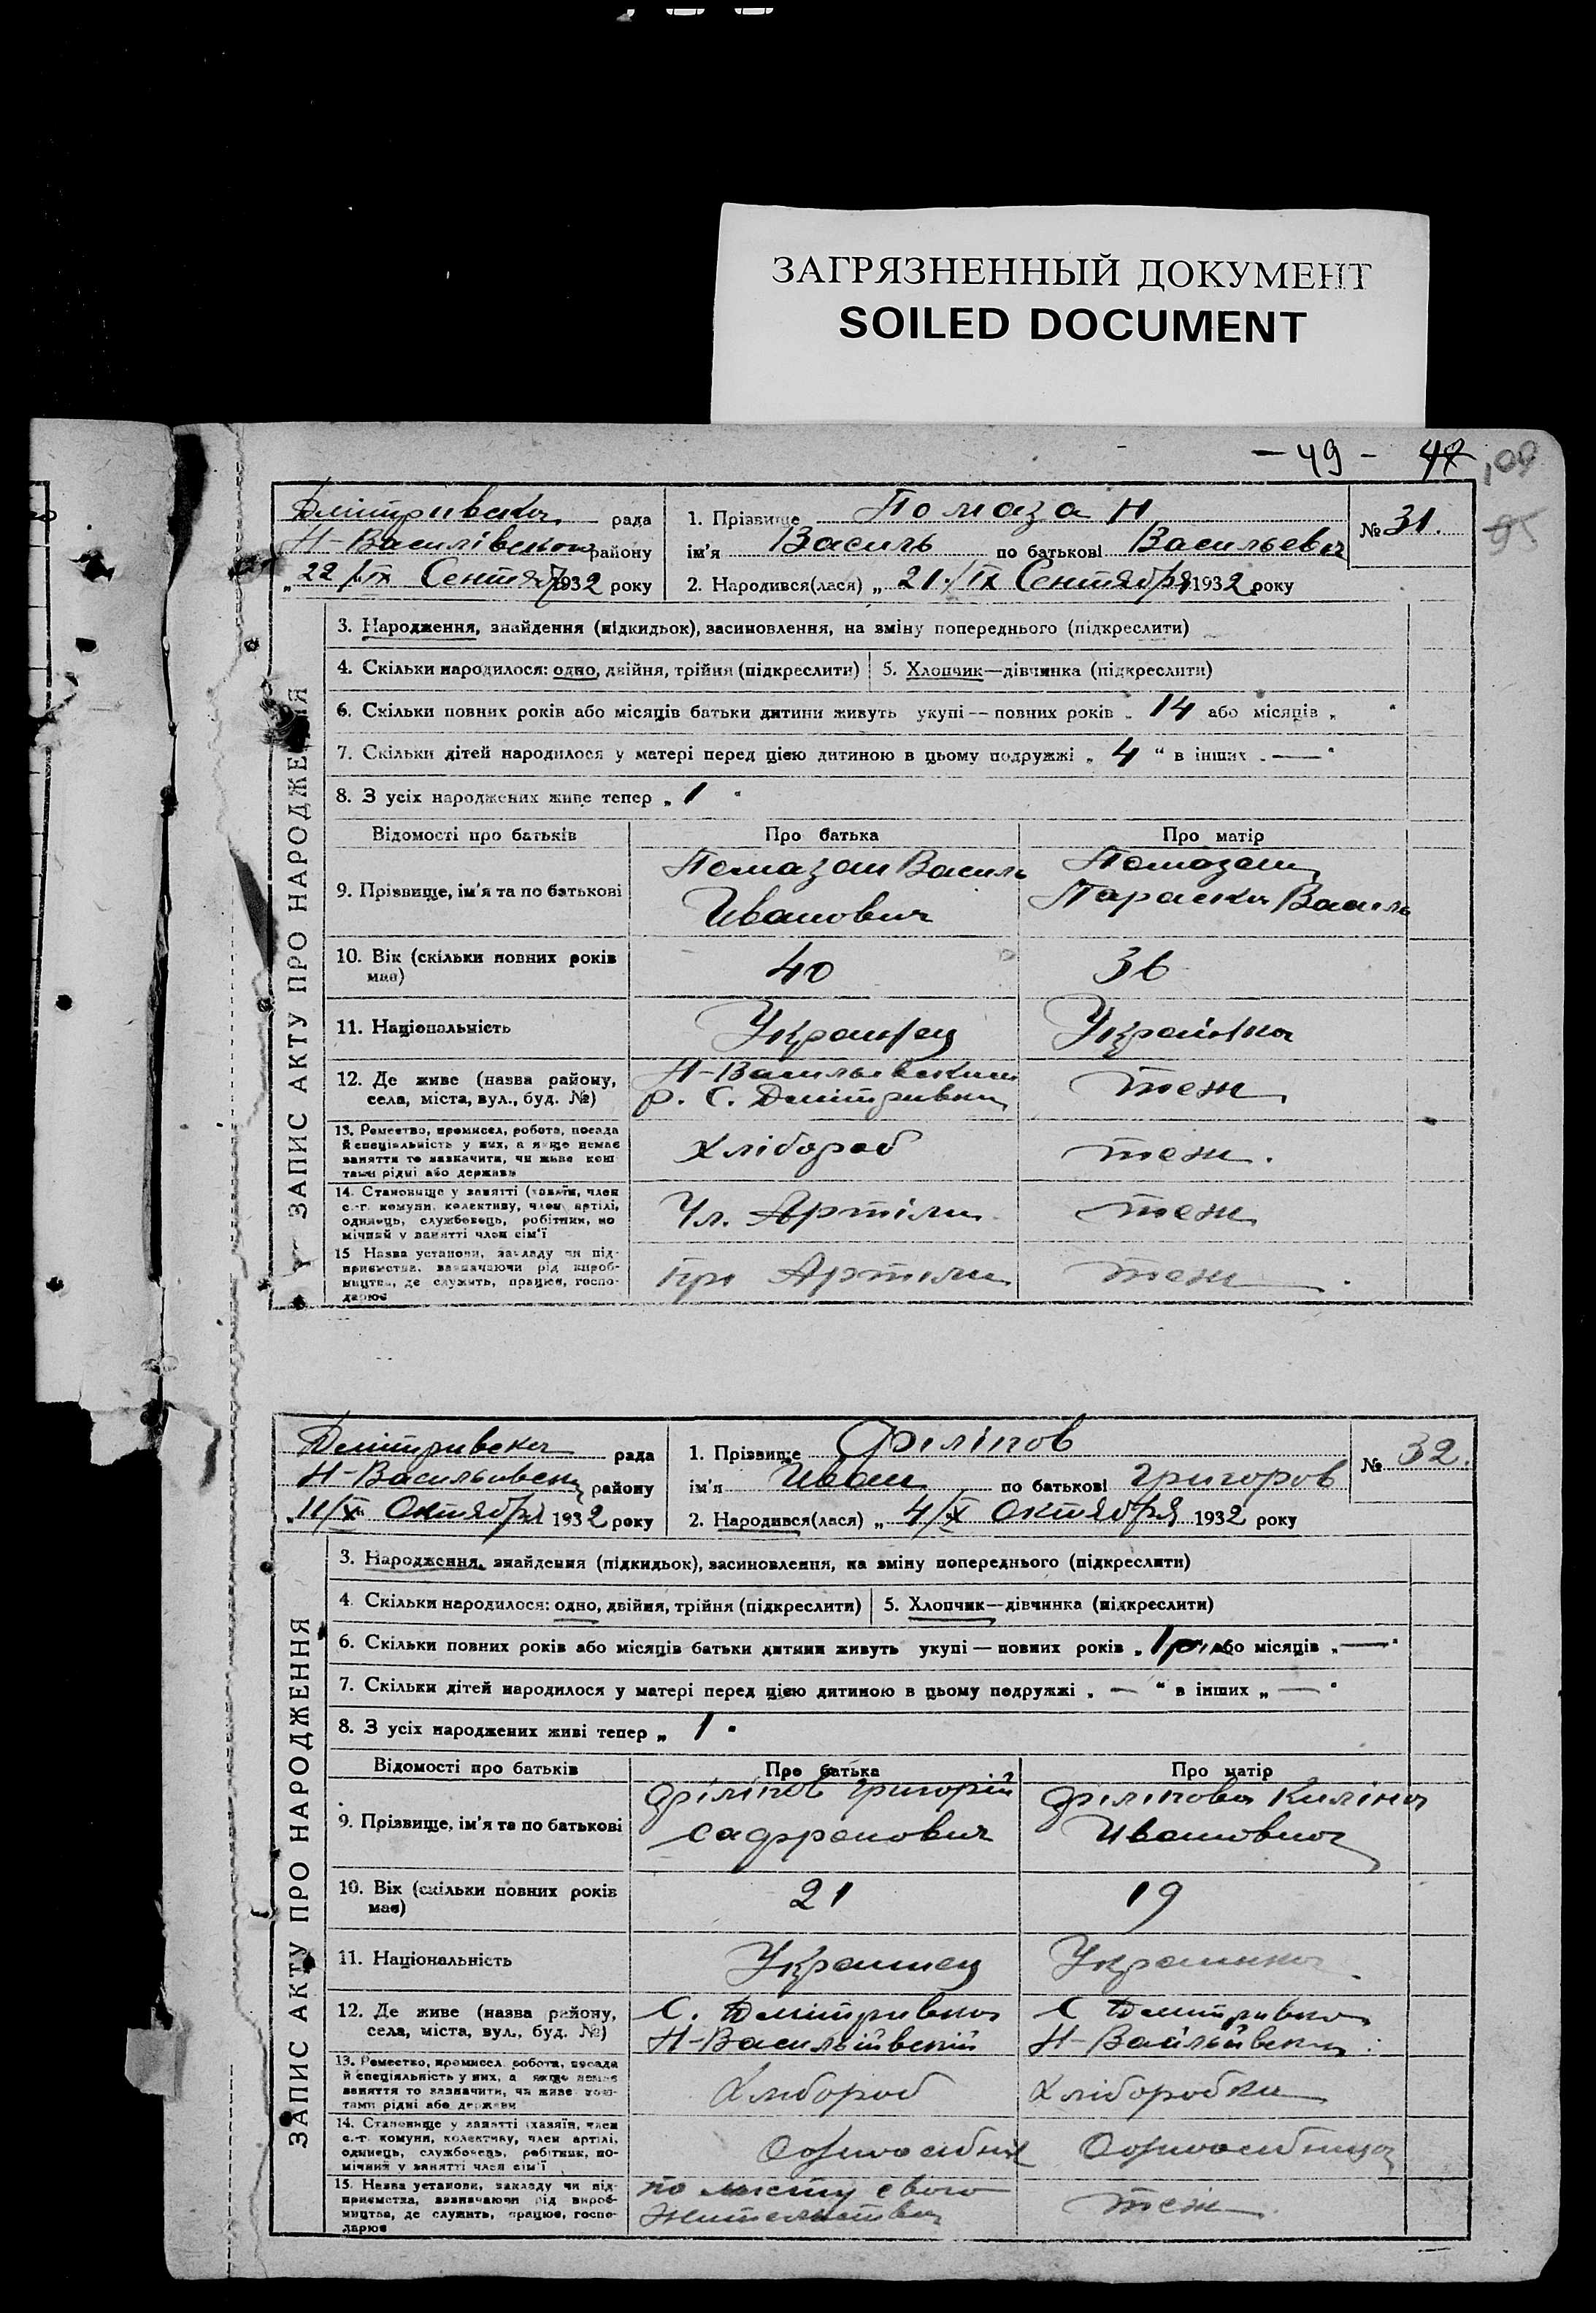 ЗАГРЯЗНЕННЫЙ ДОКУМЕНТ
SOILED DOCUMENT
- 49 - 
Дмітрівська рада
Н-Василівском району
"22/IX Сентября 1932 року
1. Прізвище Помазан
ім'я Василь по батькові Васильевич
2. Народився(лася) „21/IX Сентября 1932 року
№ 31.
95
ЗАПИС АКТУ ПРО НАРОДЖЕННЯ
3. Народження, знайдення (підкидьок), засиновлення, на зміну попереднього (підкреслити)
4. Скільки народилося: одно, двійня, трійня (підкреслити) 5. Хлопчик—дівчинка (підкреслити)
6. Скільки повних років або місяців батьки дитини живуть укупі — повних років „ 14 або місяців „ "
7. Скільки дітей народилося у матері перед цією дитиною в цьому подружжі „ 4 " в інших „ — "
8. З усіх народжених живе тепер „ 1 "
Відомості про батьків Про батька Про матір
9. Прізвище, ім'я та по батькові Помазан Василь Иванович Помазан Параска Василь
10. Вік (скільки повних років має) 40 36
11. Національність Украінец Украінка
12. Де живе (назва району, села, міста, вул., буд. №) Н-Васильевский р. С. Дмітрівка теж
13. Ремество, промисел, робота, посада й спеціяльність у них, а якщо немає заняття то зазначити, чи живе коштами рідні або держави Хлібороб теж.
14. Становище у занятті (хазяїн, член с.-г. комуни, колективу, член артілі, одинець, службовець, робітник, помічний у занятті член сім'ї Чл. Артіли теж
15 Назва установи, закладу чи підприємства, зазначаючи рід виробництва, де служить, працює, господарює при Артіли теж
Дмітрівска рада
Н-Васильовск району
"11/X Октября 1932 року
1. Прізвище Філіпов
ім'я Иван по батькові Григоров
2. Народився(лася) „ 4/X Октября 1932 року
№ 32.
ЗАПИС АКТУ ПРО НАРОДЖЕННЯ
3. Народження, знайдення (підкидьок), засиновлення, на зміну попереднього (підкреслити)
4. Скільки народилося: одно, двійня, трійня (підкреслити) 5. Хлопчик—дівчинка (підкреслити)
6. Скільки повних років або місяців батьки дитини живуть укупі — повних років „ 1 рік або місяців „ — "
7. Скільки дітей народилося у матері перед цією дитиною в цьому подружжі „ — " в інших „ — "
8. З усіх народжених живі тепер „ 1 "
Відомості про батьків Про батька Про матір
9. Прізвище, ім'я та по батькові Філіпов Григорій Сафронович Філіпова Килина Ивановна
10. Вік (скільки повних років має) 21 19
11. Національність Украинец Украинка
12. Де живе (назва району, села, міста, вул., буд. №) С. Дмітрівка Н-Васильівскій С Дмитрівка Н-Васільівски
13. Ремество, промисел, робота, посада й спеціяльність у них, а якщо немає заняття то зазначити, чи живе коштами рідні або держави Хлібороб Хлібороbка
14. Становище у занятті (хазяїн, член с.-г. комуни, колективу, член артілі, одинець, службовець, робітник, помічний у занятті член сім'ї Одноосібник Одноосібница
15. Назва установи, закладу чи підприємства, зазначаючи рід виробництва, де служить, працює, господарює по місту свого жительства теж